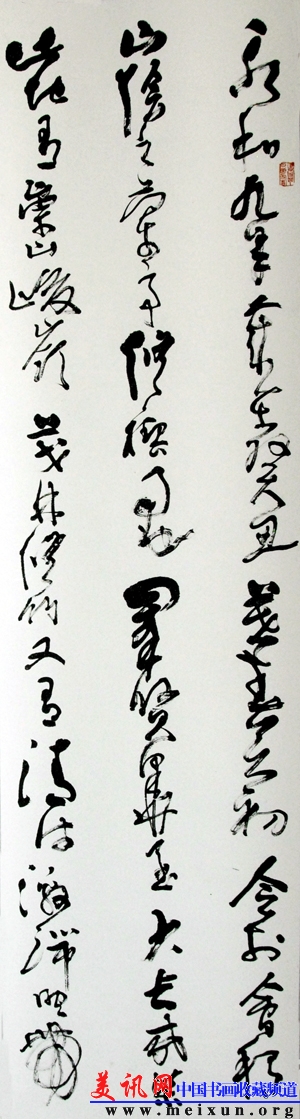 永和九年歲在癸丑暮春之初會於會稽
山陰之蘭亭修禊事也群賢畢至少長咸集
此地有崇山峻嶺茂林修竹又有清流激湍映帶
美讯网 中国书画收藏频道
www.meixun.org